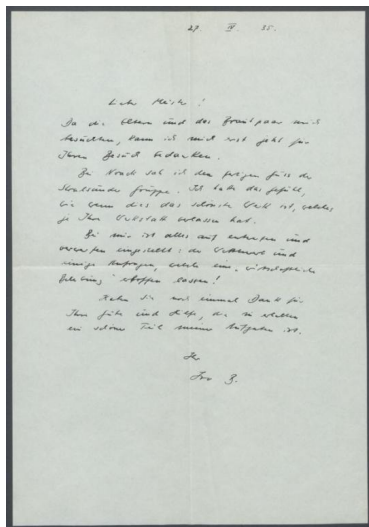 27. IV. 35.
Lieber Meister!
Da die Eltern und das Brautpaar mich
besuchten, kann ich mich erst jetzt für
Ihren Besuch bedanken.
Bei Noack sah ich den fertigen Guss der
Stralsunder Gruppe. Ich habe das Gefühl,
wie wenn dies das schönste Werk ist, welches
je Ihre Werkstatt verlassen hat.
Bei mir ist alles auf entwerfen und
verwerfen eingestellt: der Wettbewerb und
einige Anfragen, welche eine
" erhoffen lassen!
Haben Sie noch einmal Dank für
Ihre Güte und Hilfe, die zu erhalten
ein schöner Teil meiner Aufgaben ist.
Ihr
B.